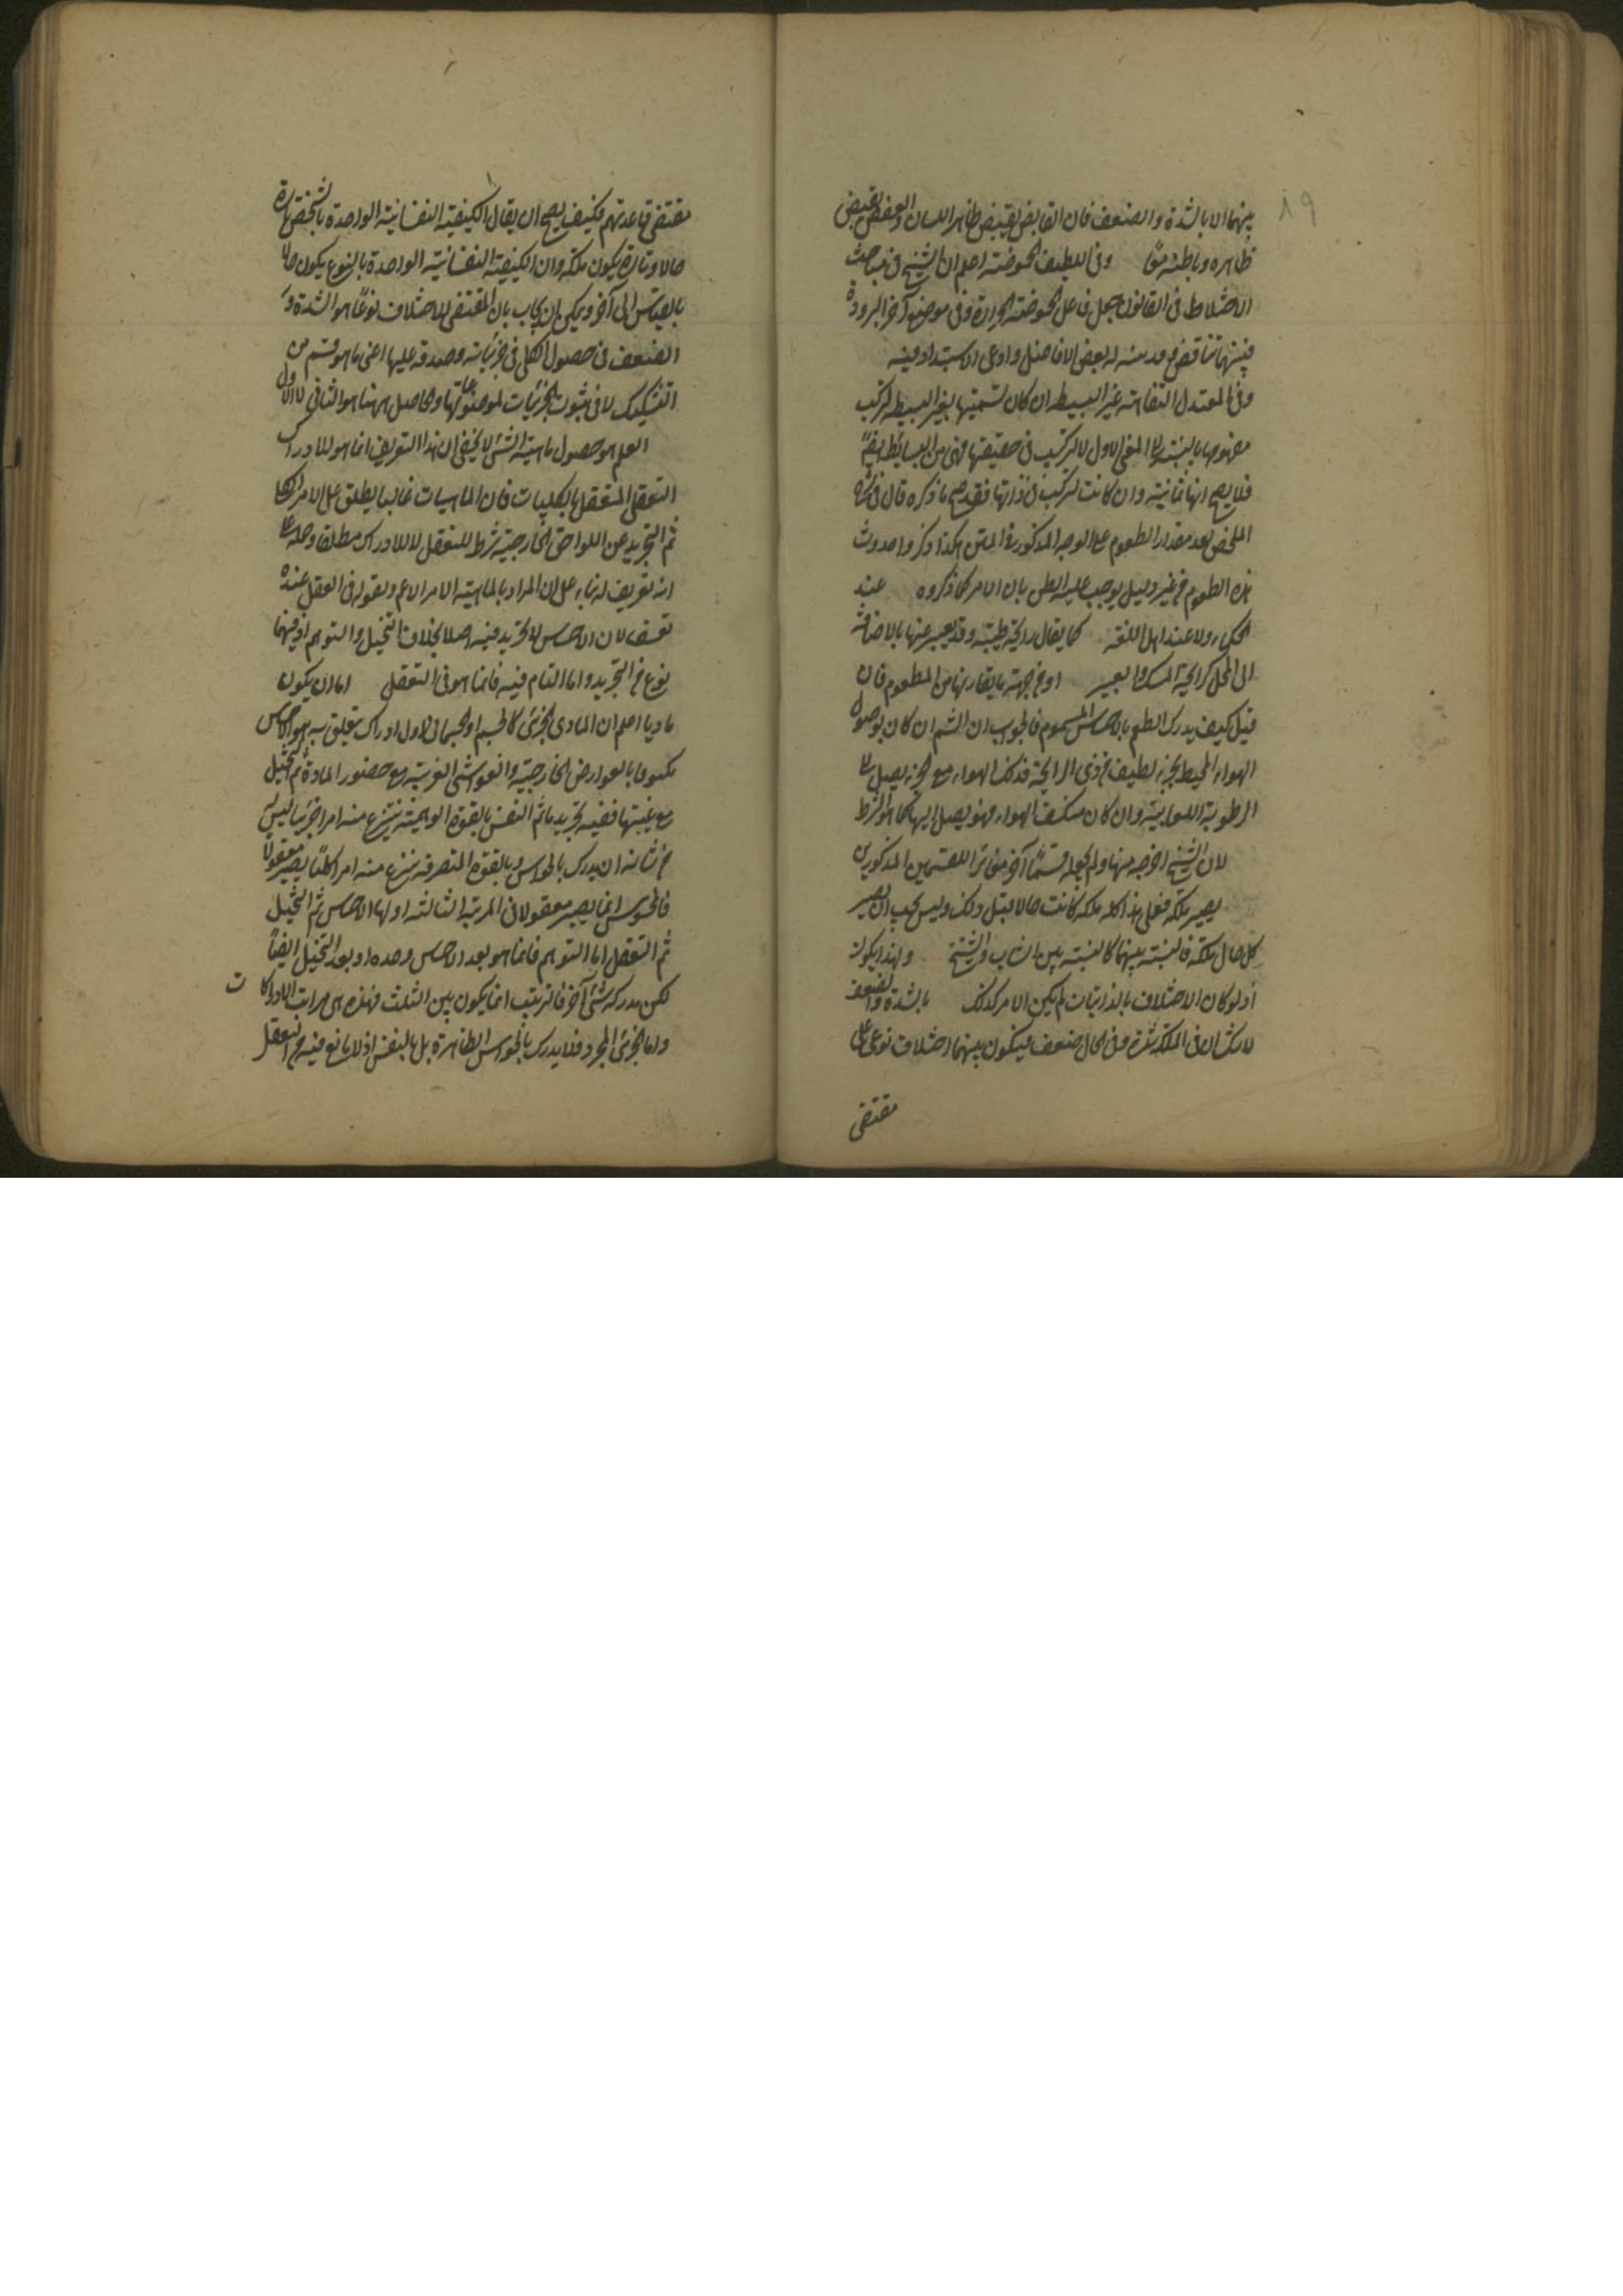 ١٩
بينهما الا بالشدة والضعف فان القابض يقبض ظاهر اللسان والعفص يقبض
ظاهره وباطنه معًا وفى اللطيف الحموضته اعلم ان الشيخ فى مباحث
الاختلاط فى القانون جعل فاعل الحموضته الحرارة وفى موضع آخر البرودة
فبينهما تناقض بعض الافاضل وادعى الاستبداد فيه
وفى المعتدل التفاهته غير البسيطه ان كان تسميتها بغير البسيطه لتركب
مفهومها بالنسبته الى المعنى الاول لا لتركيب فى حقيقتها فهى من البسايط ايضًا
فلا يصح انها ثمانية وان كانت لتركب فى ذاتها فقد صح ما ذكره قال فى
الملخص بعد مقدار الطعوم على الوجه المذكور فى المتن هكذا ذكروا حدوث
هذه الطعوم من غير دليل يوجب غلبه الظن بان الامر كما ذكروه عند
الحكماء ولا عند اهل اللغته كما يقال رايحة طيبته وقد يعبر عنها بالاضافته
الى المحل كرايحة المسك والعبير او من جهته ما يقارنها من المطعوم فان
قيل كيف يدرك الطعم باحساس المشموم فالجواب ان الشم ان كان بوصول
الهواء المحيط بجزء لطيف من ذى الرايحة فذلك الهواء مع الجزء يصل الى
الرطوبة اللعابيته وان كان متكيف الهواء فهو يصل اليها كما هو الشرط
لان الشيخ اخرجه منها ولم يجعله قسمًا آخر مغايرًا للقسمين المذكورين
يصير ملكة فعلى هذا كله ملكه كانت حالا قبل ذلك وليس يجب ان يصير
كل حال ملكة فالنسبته بينهما كالنسبته بين الشاب والشيخ ولهذا يكون
اذ لو كان الاختلاف بالذاتيات لم يكن الامر كذلك بالشدة والضعف
لا شك ان فى الملكة شدة وفى الحال ضعف فيكون بينهما اختلاف نوعى على
مقتضى
مقتضى قاعدتهم فكيف يصح ان يقال الكيفية النفسانيته الواحدة بالشخص تارة
حالا وتارة يكون ملكة وان الكيفيته النفسانيته الواحدة بالنوع يكون حالا
بالقياس الى آخر ويمكن ان يجاب بان المقتضى للاختلاف نوعًا هو الشدة و
الضعف فى حصول الكلى فى جزئياته وصدقه عليها اعنى ما هو قسم من
التشكيك لا فى ثبوت الجزئيات لموضوعاتها والحاصل ههنا هو الثانى لا الاول
العلم هو حصول ماهيته الشئ لا يخفى ان هذا التعريف انما هو للادراك
التعقلى المتعقل بالكليات فان الماهيات غالبا يطلق على الامر الكلى
ثم التجريد عن اللواحق الخارجية شرط للتعقل لا للادراك مطلقا وحمله على
انه تعريف له بناء على ان المراد بالماهيته الامر الاعم وبقوله فى العقل عنده
تعسف لان الاحساس لا تجريد فيه اصلا بخلاف التخيل والتوهم اذ فيهما
نوع من التجريد واما التام فيه فانما هو فى التعقل اما ان يكون
ماديا اعلم ان المادى الجزئى كالجسم او الجسمانى لاول ادراك يتعلق به هو الاحساس
مكنوفا بالعوارض الخارجيته والغواشى الغريبة مع حضور المادة ثم التخيل
مع غيبتها ففيه تجريد ما ثم النفس بالقوة الوهميته ينتزع منه امرا جزئيا ليس
من شانه ان يدرك بالحواس وبالقوة المتصرفة ينزع منه امرا كليًا يصير معقولا
فالمحسوس انما يصير معقولا فى المرتبه الثالثه اولها الاحساس ثم التخيل
ثم التعقل اما التوهم فانما هو بعد الاحساس وحده او بعد التخيل ايضًا
لكن مدركه شئ آخر فالترتيب انما يكون بين الثلث فهذه هى مراتب الادراكات
واما الجزئى المجرد فلا يدرك بالحواس الظاهرة بل بالنفس اذ لا مانع فيه من التعقل